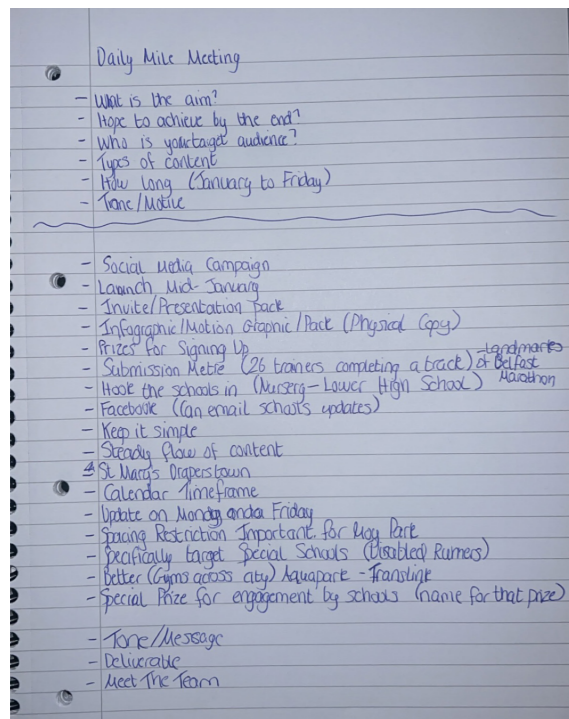 Daily Mile Meeting
- What is the aim?
- Hope to achieve by the end?
- Who is your target audience?
- Types of content
- How long (January to Friday)
- Tone/Motive
- Social Media Campaign
- Launch Mid-January
- Invite/Presentation Pack
- Infographic/Motion Graphic/Pack (Physical Copy)
- Prizes for Signing Up
- Submission Metre (26 trainers completing a track) - Landmarks of Belfast Marathon
- Hook the schools in (Nursery - Lower High School)
- Facebook (Can email schools updates)
- Keep it simple
- Steady flow of content
- St Mary's Draperstown
- Calendar Timeframe
- Update on Monday and a Friday
- Spacing Restriction Important for May Part
- Specifically target Special Schools (Disabled Runners)
- Better (Gyms across city) Aquapark - Translink
- Special Prize for engagement by schools (name for that prize)
- Tone/Message
- Deliverable
- Meet The Team